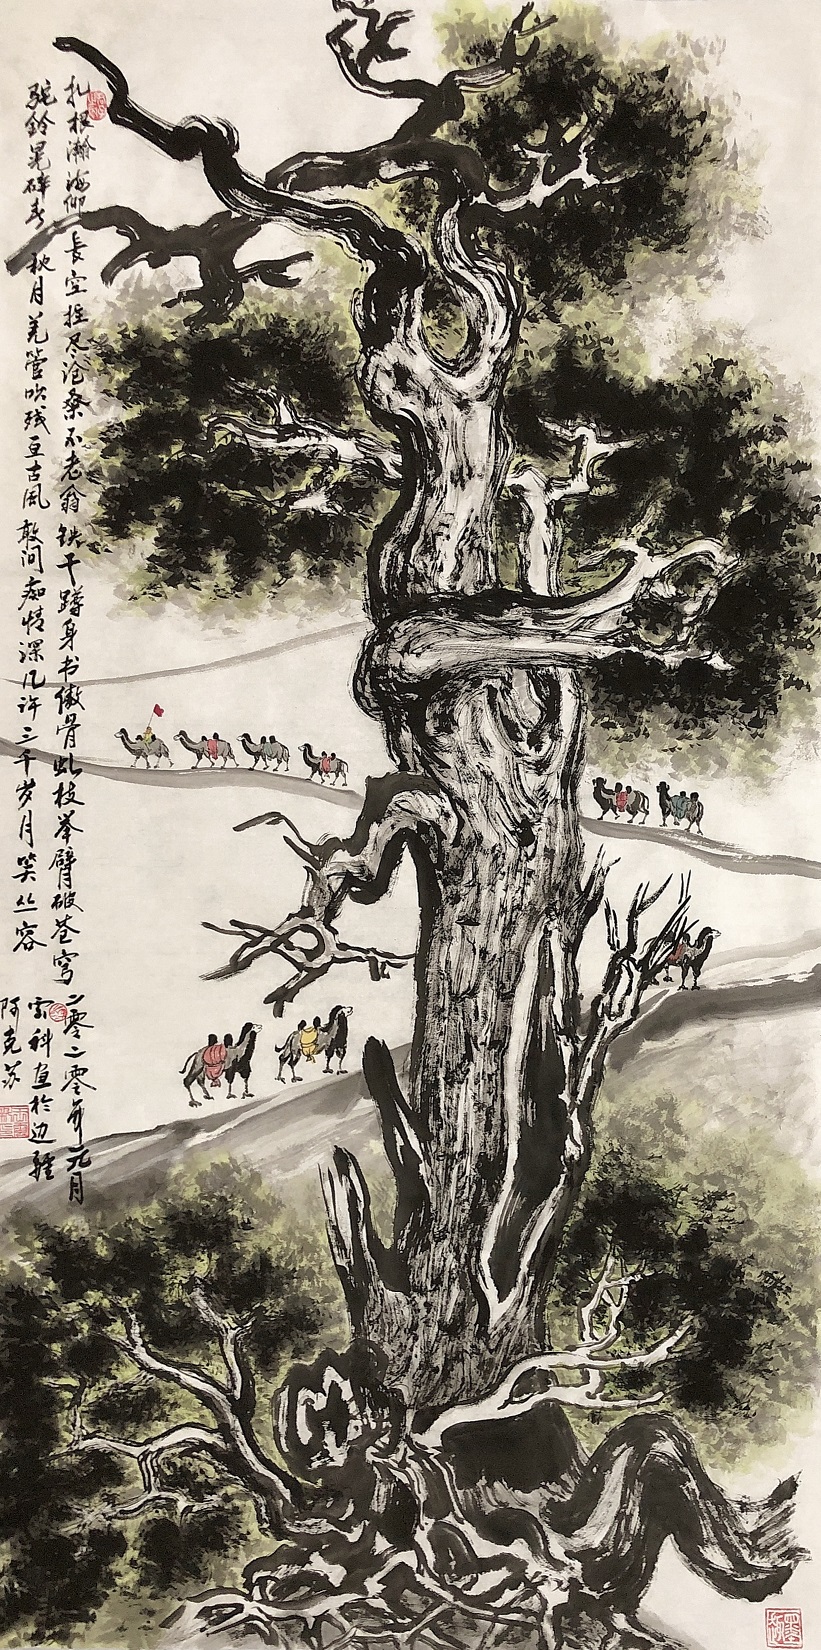 扎根瀚海仰長空歷尽沧桑不老翁铁干蹲身书傲骨虬枝举臂破苍穹
驼铃晃碎春秋月羌管吹残亘古风敢问痴情深几许三千岁月笑从容
二零二零年元月
科画於边疆
阿克苏